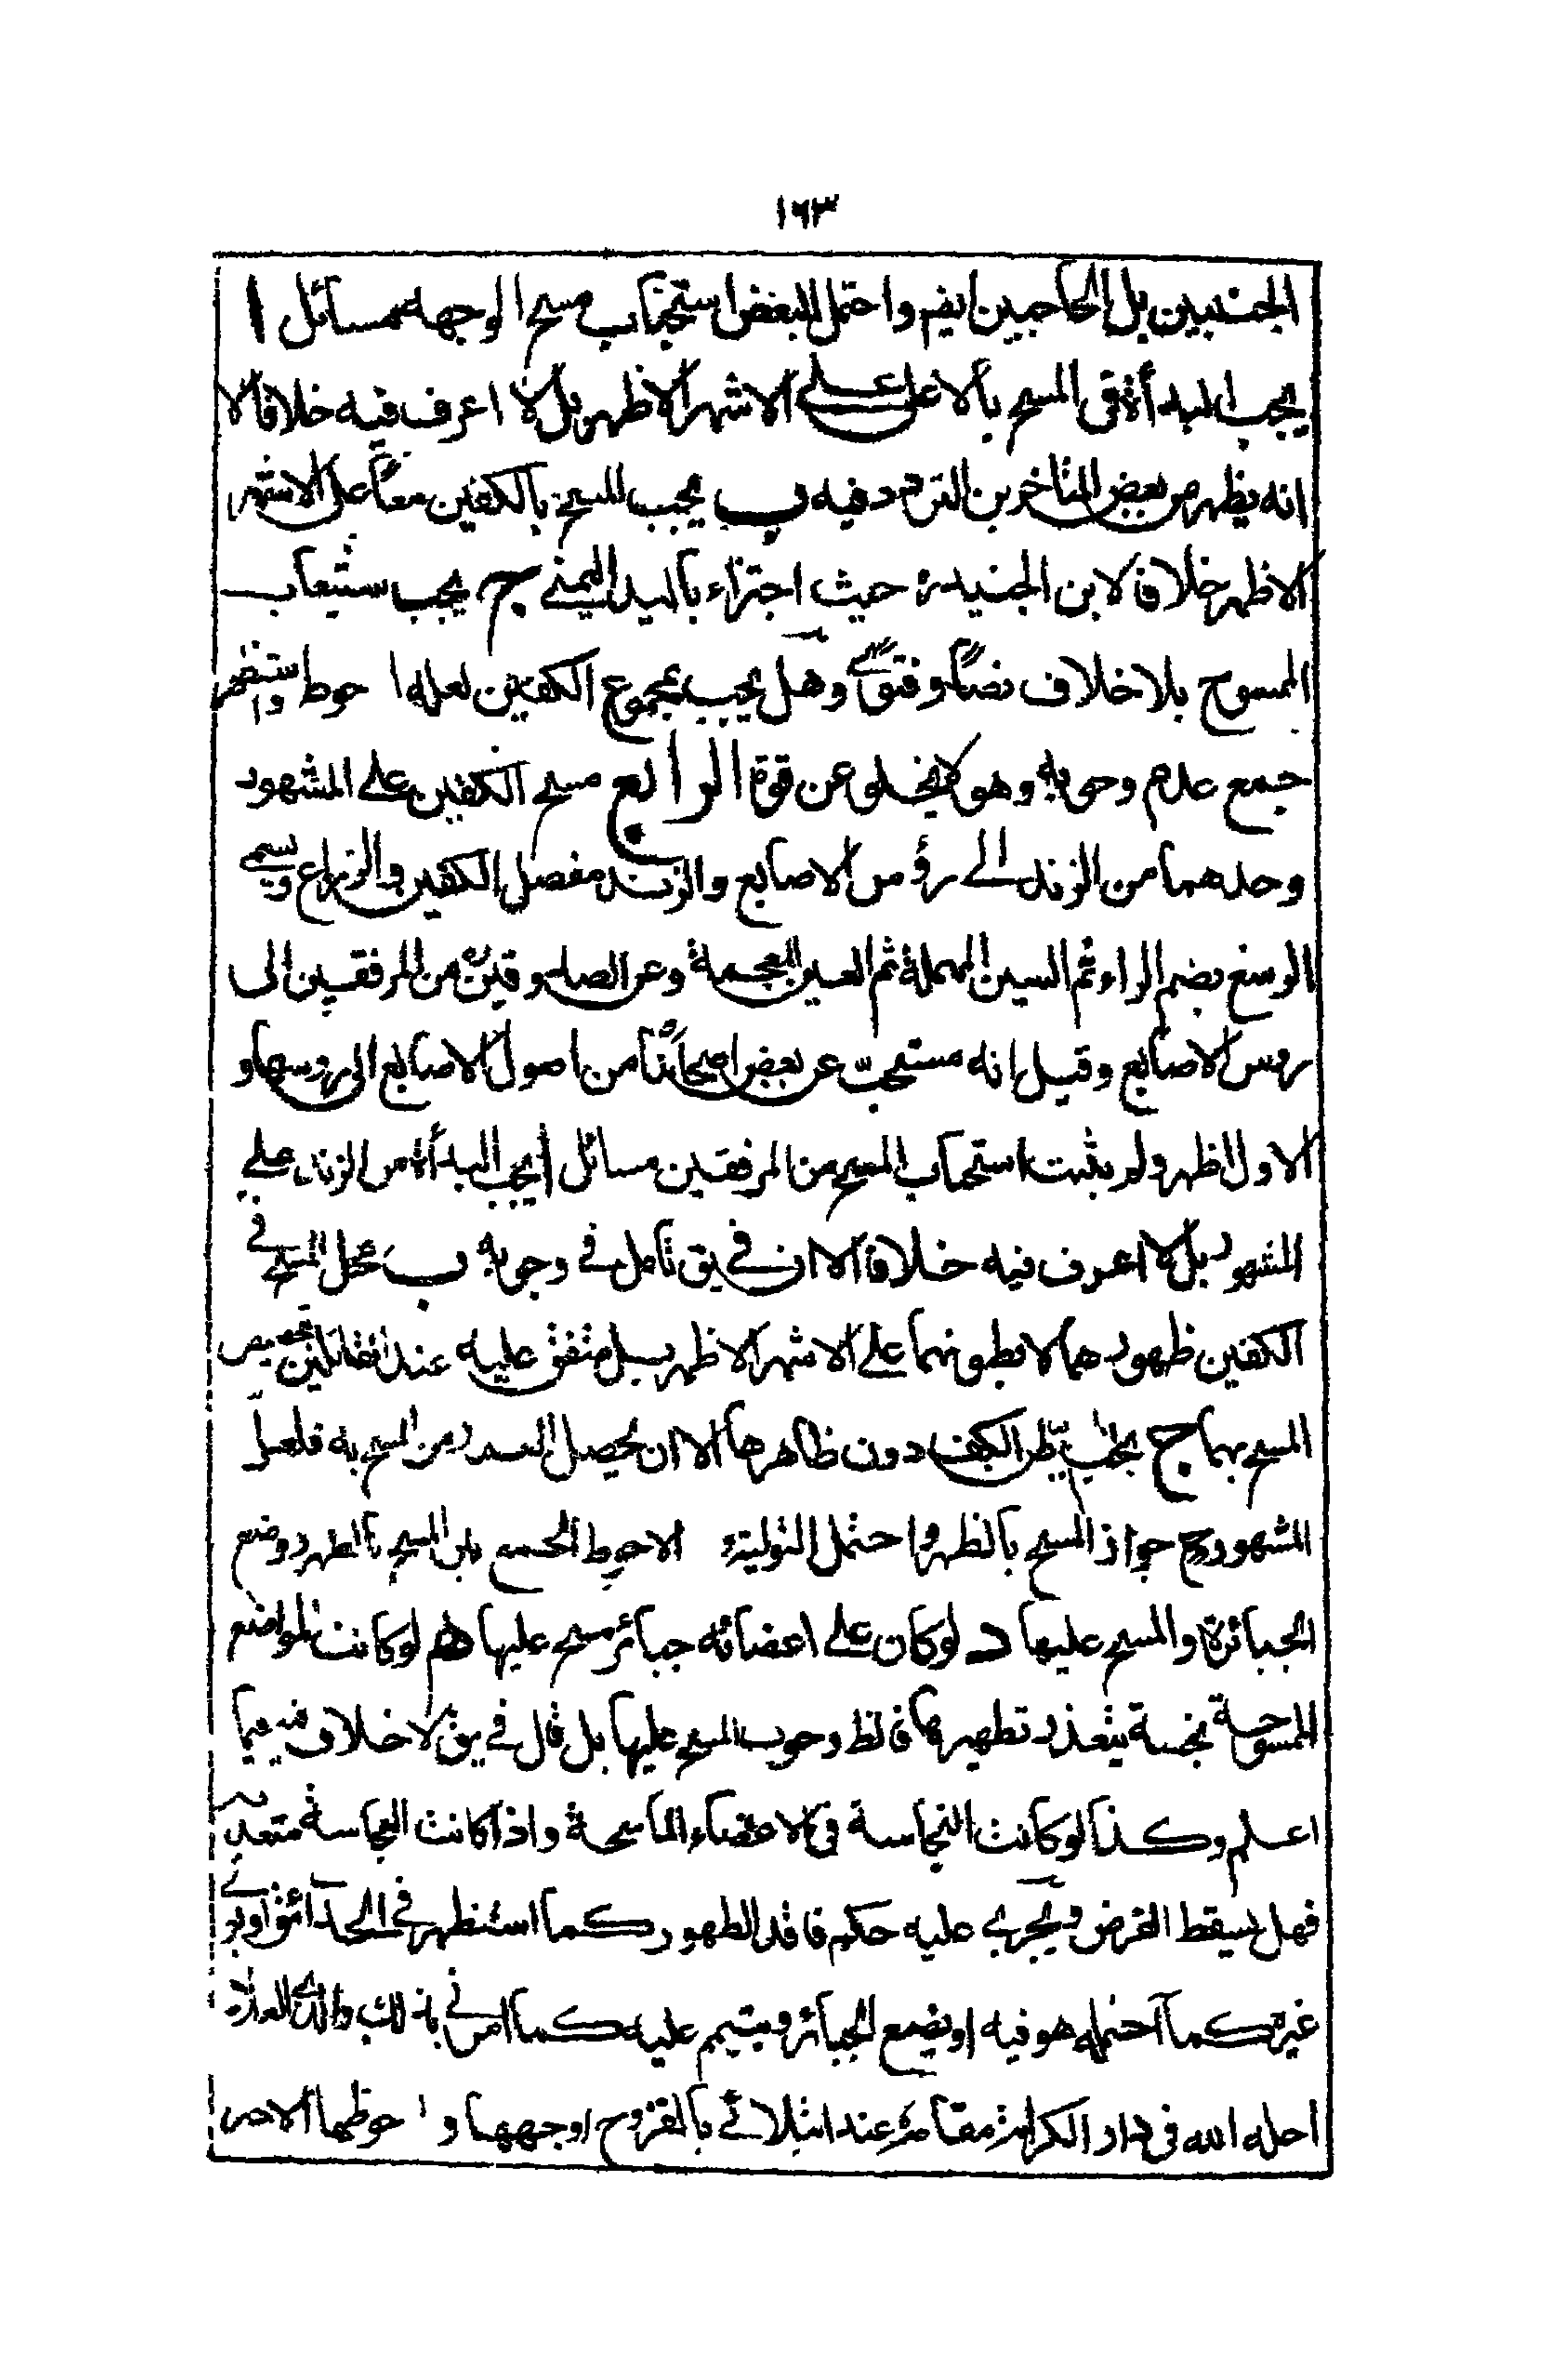 ١٦٣
الجنبيين بل الحاجبين ايضم واحتمل البعض استحباب مسح الوجه مسائل ا
يجب البدأة فى المسح بالاعلى على الاشهر الاظهر بل لا اعرف فيه خلافا الا
انه يظهر من بعض المتاخرين التردد فيه ب يجب المسح بالكفين معاً على الاشهر
الاظهر خلافا لابن الجنيد ره حيث اجتزاء باليد اليمنى ج يجب ستيعاب
الممسوح بلا خلاف نصاً وفتوى وهل يجب بمجموع الكفين لعله ا حوط واستظهر
جمع عدم وجوبه وهو لا يخلو عن قوة الرابع مسح الكفين على المشهور
وحدهما من الزند الى رؤس الاصابع والزند مفصل الكفين والزراع ويسمى
الرسغ بضم الراء ثم السين المهملة ثم الغين المعجمة وعن الصدوقين من المرفقين الى
روس الاصابع وقيل انه مستحبّ عن بعض اصحابنا من اصول الاصابع الى روسها و
الاول اظهر ولم يثبت استحباب المسح من المرفقين مسائل ا يجب البدأة من الزند على
المشهور بل لا اعرف فيه خلافا الا ان فى يق تامل فى وجوبه ب محل المسح فى
الكفين ظهورهما لا بطونهما على الاشهر الاظهر بل متفق عليه عند القائلين بتخصيص
المسح بهما ج يجب بطن الكف دون ظاهرها الا ان يحصل العذر من المسح به فلعل
المشهور ح جواز المسح بالظهر واحتمل التولية الاحوط الجمع بين المسح بالظهر ووضع
الجبائرة والمسح عليها د لو كان على اعضائه جبائر مسح عليها هم لو كانت المواضع
الممسوحة نجسة يتعذر تطهيرها فالظ وجوب المسح عليها بل قال فى يق لا خلاف فيه فيما
اعلم وكذا لو كانت النجاسة فى الاعضاء الماسحة واذا كانت النجاسة متعدية
فهل يسقط الفرض ويجرى عليه حكم فاقد الطهور كما استنظهر فى الحدائق او يولى
غيره كما احتمله هو فيه او يضع الجبائر ويتيمم عليه كما امرنى بذلك والدى العلامة
احله الله فى دار الكرامة مقامه عند ابتلائى بالقروح اوجهها و ا حوطها الاخير